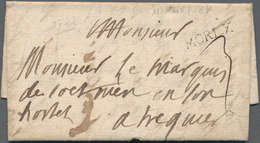 Monsieur
MORLX
Monsieur Le marquis
de en son
hostel a treguier